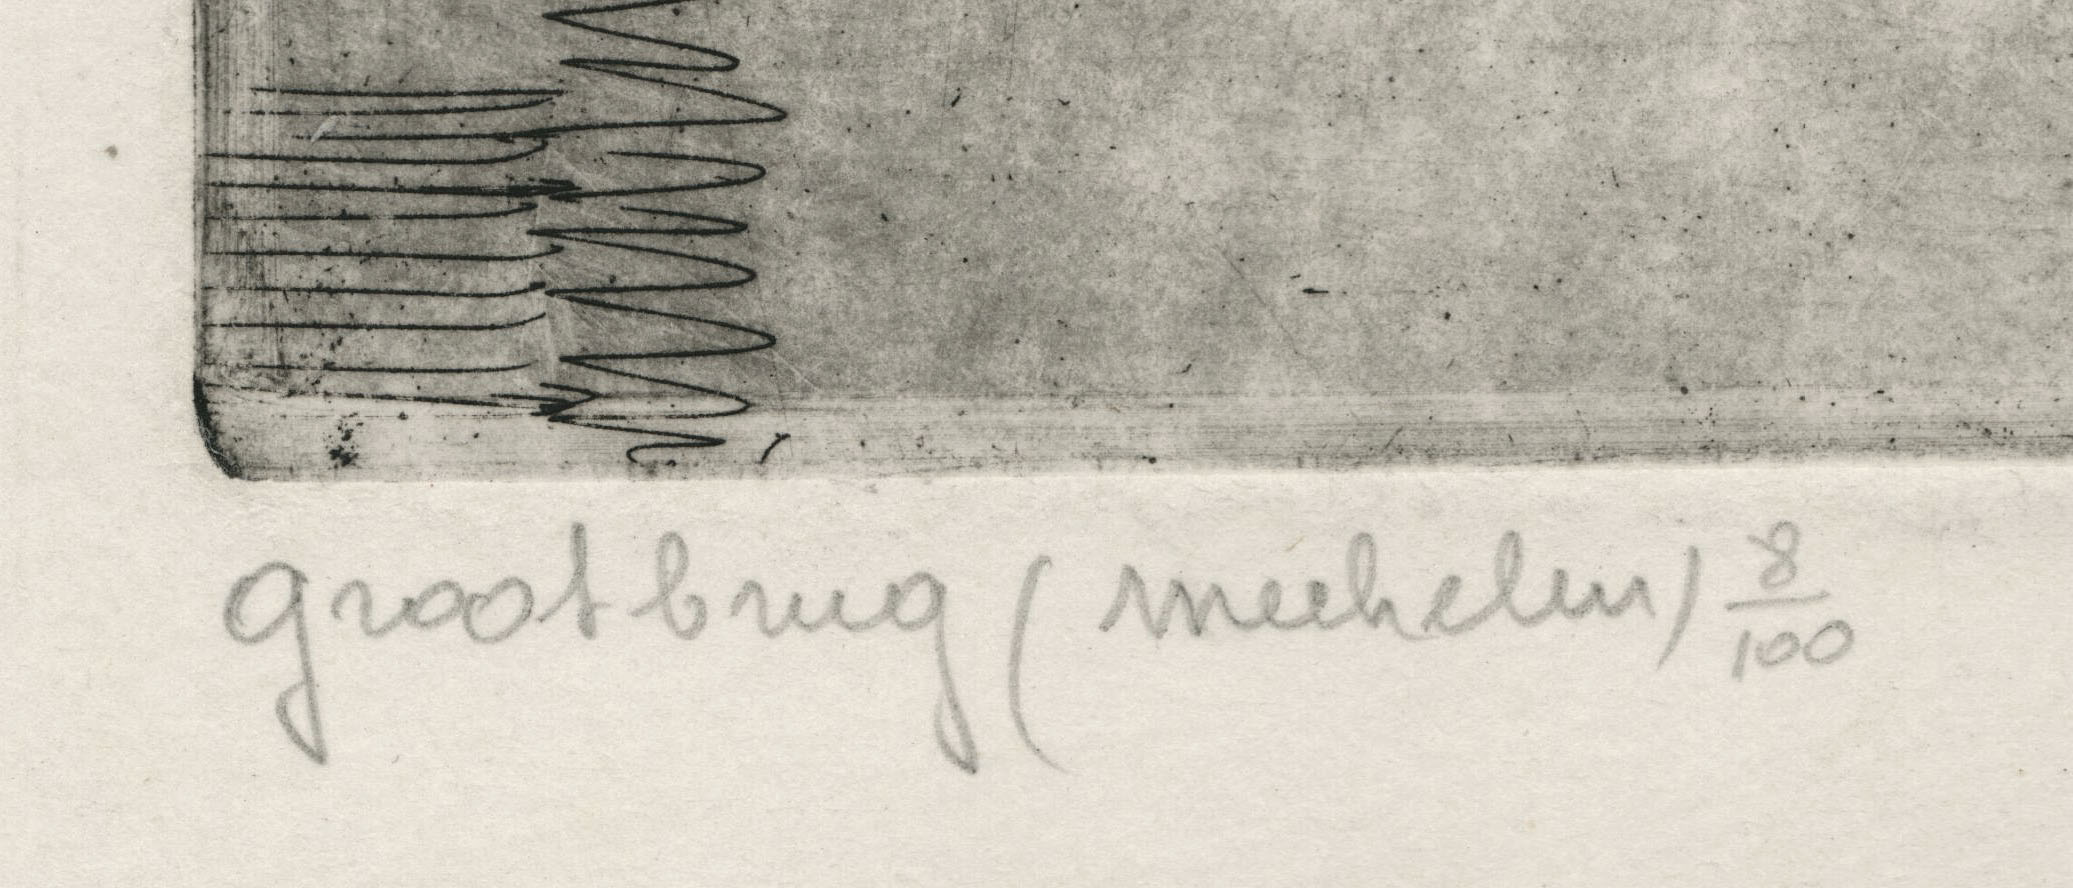 grootbrug (mechelen) 8/100